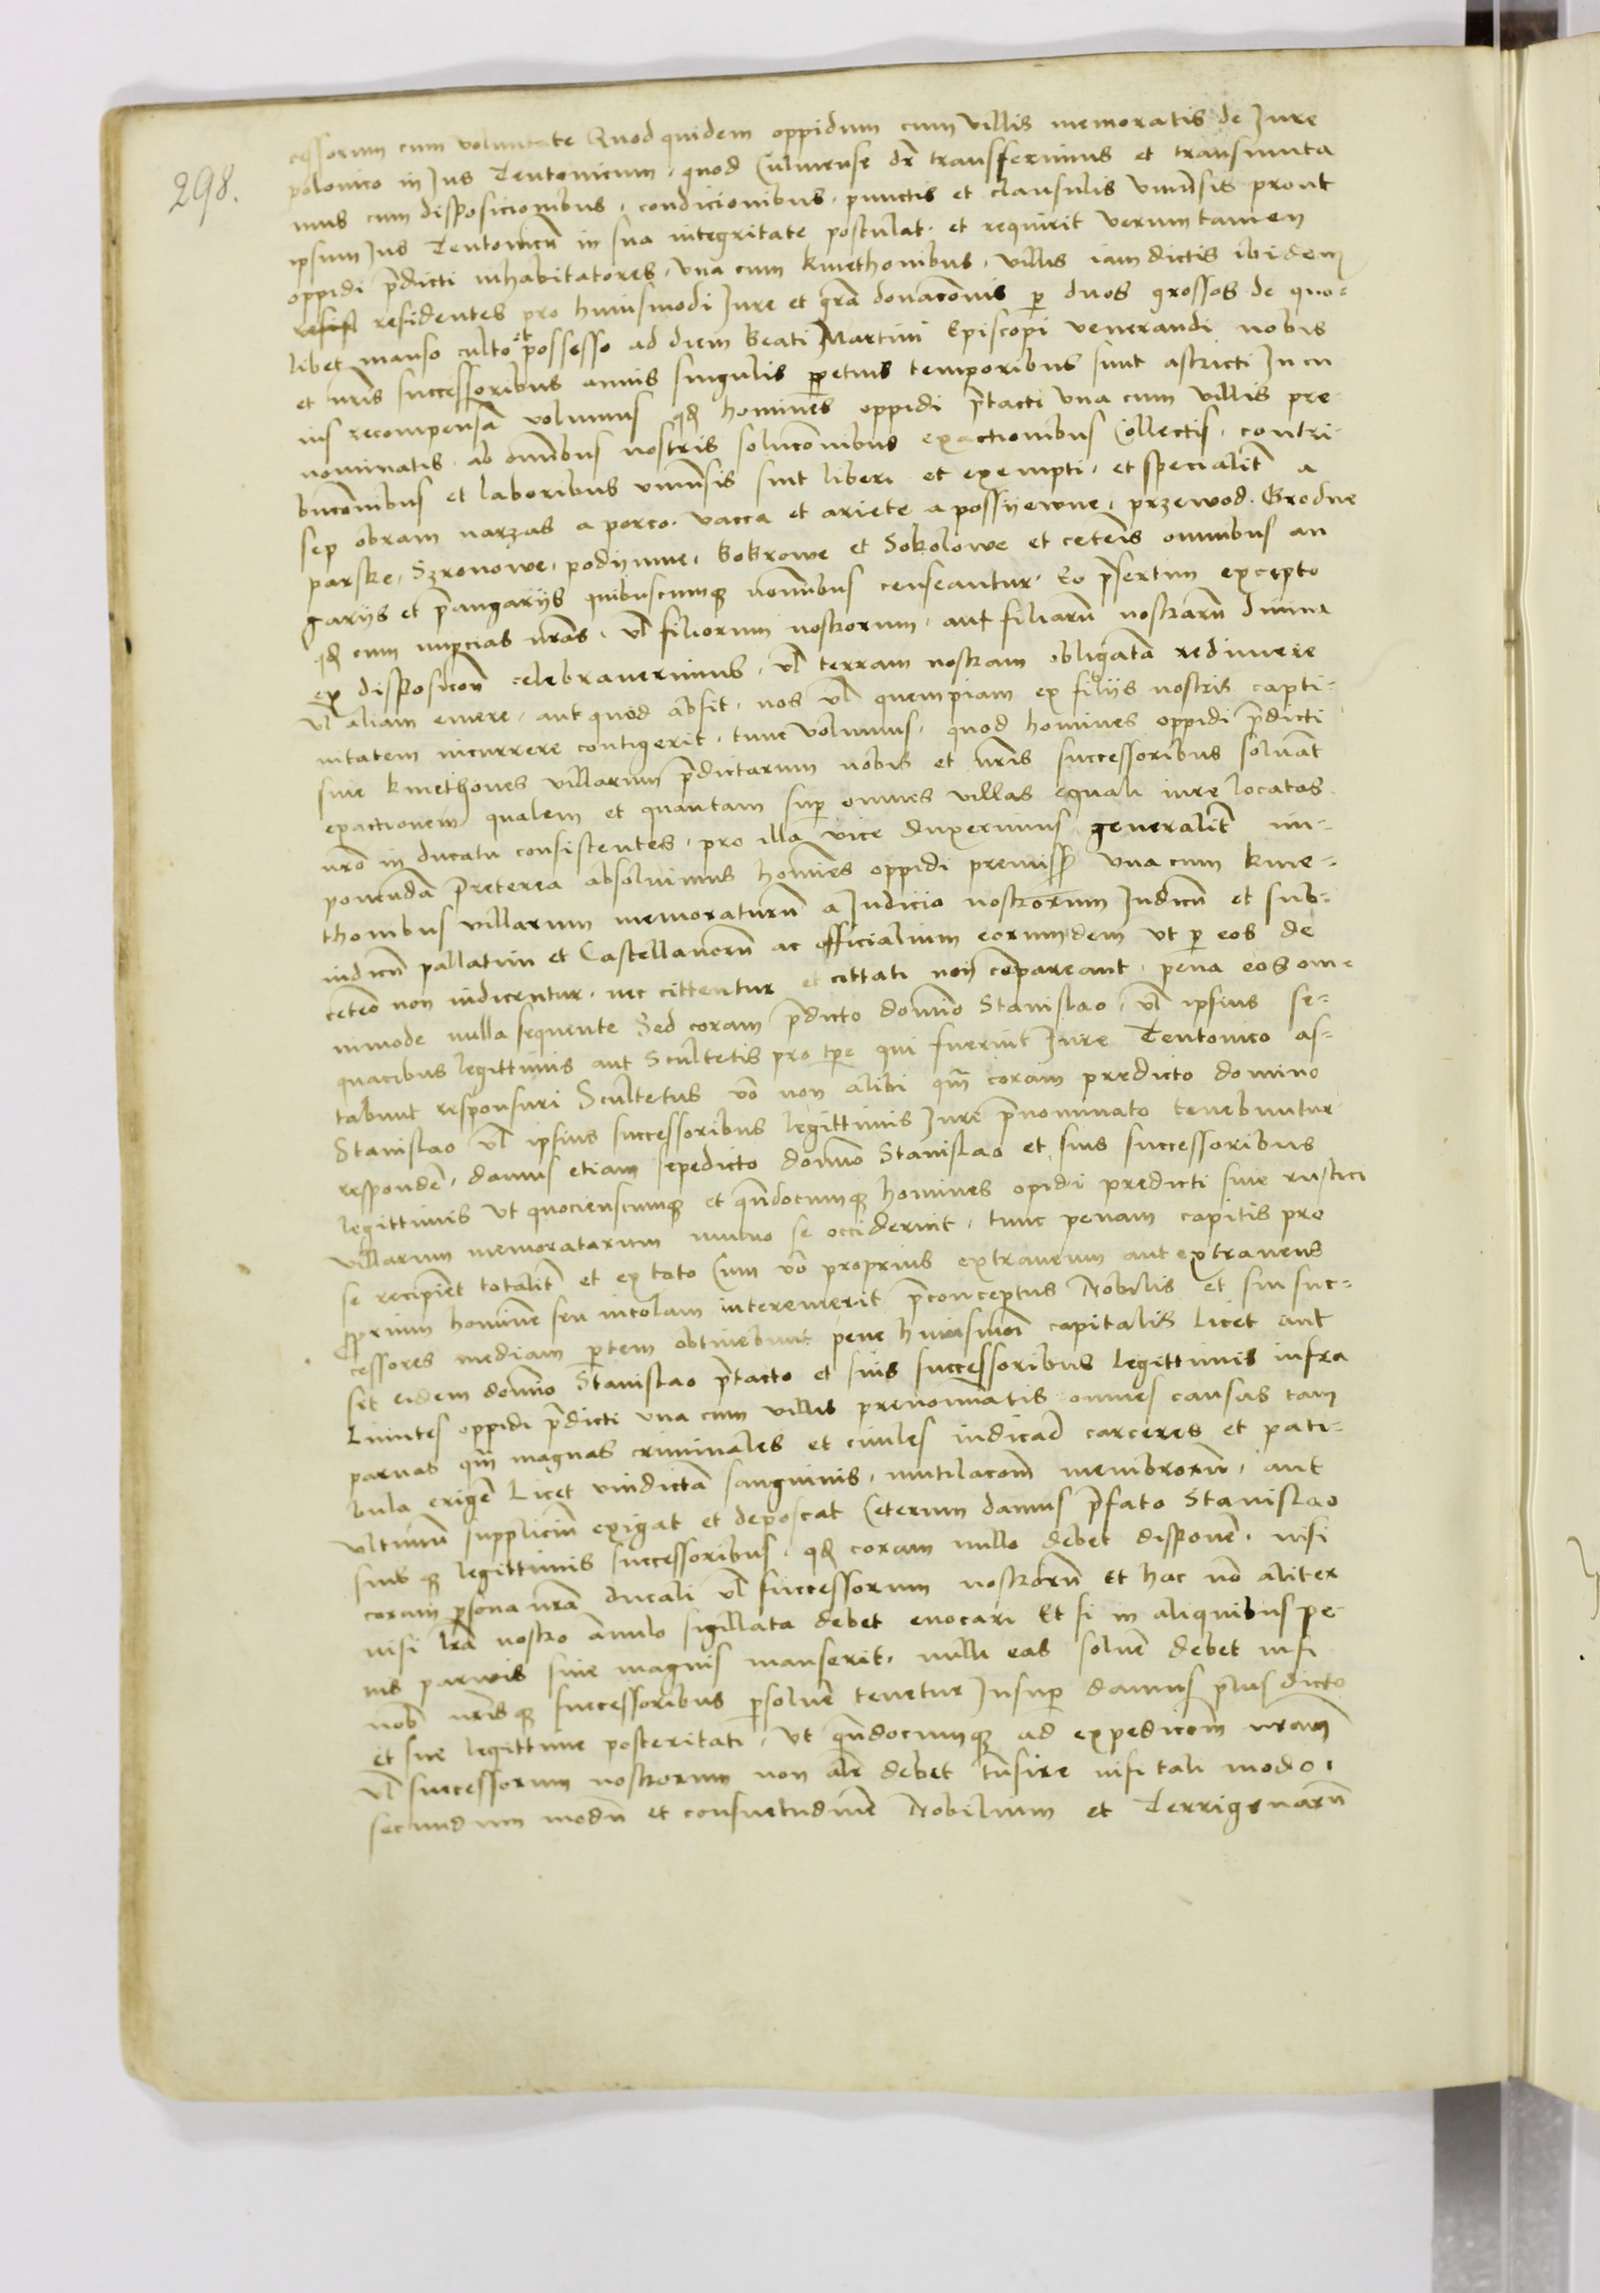 298.
cessorum cum voluntate Quod quidem oppidum cum villis memoratis de Jure
polonico in Jus Teutonicum, quod Culmense dr̄ transferimus et transmuta
mus cum disposicionibus, condicionibus, punctis et clausulis vniūsis prout
ipsum Jus Teutonicū in sua integritate postulat, et requirit verumtamen
oppidi p̄dicti inhabitatores, vna cum kmethonibus, villis iam dictis ibidem
residentes pro huiusmodi Jure et gr̄a donacōnis p duos grossos de quo-
libet manso culto et possesso ad diem beati Martini Episcopi venerandi nobis
et nr̄is successoribus annis singulis ppetuis temporibus sint astricti In cu
ius recompensā volumus qd homines oppidi p̄tacti vna cum villis pre
nominatis, ab omībus nostris solucōnibus exactionibus Collectis, contri-
bucōnibus et laboribus vniūsis sint liberi et exempti, et specialit̄ a
sep obram narzas a porco, vacca et ariete a possyewne, przewod, Grodne
parske, Szronowe, podymne, bobrowe et Sokolowe et ceteris omnibus an
gariis et p̄angariis quibuscumq nominibus censeantur, Eo p̄sertim excepto
qd cum nupcias nr̄as, vl filiorum nostrorum, aut filiarū nostrarū diuina
ex disposicōn celebrauerimus, vl terram nostram obligatā redimere
vl aliam emere, aut quod absit, nos vl quempiam ex filiis nostris capti-
uitatem incurrere contigerit, tunc volumus, quod homines oppidi p̄dicti
siue kmethones villarum p̄dictarum nobis et nr̄is successoribus soluāt
exactionem qualem et quantam sup omnes villas equali iure locatas
nr̄o in ducatu consistentes, pro illa vice duxerimus generalit̄ im-
ponendā Preterea absoluimus homīes oppidi premissi vna cum kme-
thonibus villarum memoraturū a Judicio nostrorum Judicū et sub-
iudicū pallatini et Castellanorū ac officialium eorumdem vt p eos de
ceteō non iudicentur, nec cittentur et cittati non cōpareant, pena eos om-
nimode nulla sequente Sed coram p̄dicto domīo Stanislao, vl ipsius se-
quacibus legittimis aut Scultetis pro tp̄e qui fuerint Jure Teutonico as-
tabunt responsuri Scultetus vō non alibi qm̄ coram predicto domino
Stanislao vl ipsius successoribus legittimis Jure p̄nominato tenebuntur
respondē, damus etiam sepedicto domīo Stanislao et suis successoribus
legittimis vt quocienscumq et qn̄documq homines opidi predicti siue rustici
villarum memoratarum mutuo se occiderint, tunc penam capitis pro
se recipiet totalit̄ et ex toto Cum vō proprius extraneum aut extraneus
proprium hominē seu incolam interemerit p̄conceptus Nobilis et sui suc-
cessores mediam ptem obtinebunt pene huiusmōi capitalis Licet aut
sit eidem domīo Stanislao p̄tacto et suis successoribus legittimis infra
Limites oppidi p̄dicti vna cum villis prenominatis omnes causas tam
paruas qm̄ magnas criminales et ciuiles iudicād carceres et pati-
bula erigē Licet vindictā sanguinis, mutilacōm membrorū, aut
vltimū suppliciū exigat et deposcat Ceterum damus p̄fato Stanislao
suisq legittimis successoribus, qd coram nullo debet disponē, nisi
coram psona nr̄a ducali vl successorum nostrorū et hac nō aliter
nisi lr̄a nostro anulo sigillata debet euocari Et si in aliquibus pe-
nis paruis siue magnis manserit, nulli eas soluē debet nisi
nob nr̄isq successoribus psoluē tenetur Insup damus p̄lus dicto
et sue legittime posteritati, vt qn̄documq ad expedicōm nr̄am
vl successorum nostrorum non alr̄ debet tn̄sire nisi tali modo,
secundum modū et consuetudinē Nobilium et Terrigenarū